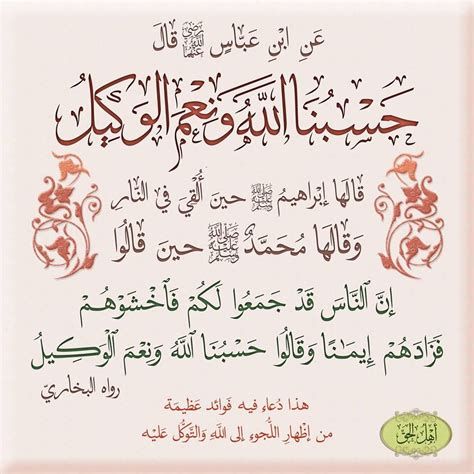 عَنِ ابْنِ عَبَّاسٍ رَضِيَ اللهُ عَنْهُمَا قَالَ
حَسْبُنَا اللَّهُ وَنِعْمَ الْوَكِيلُ
قَالَهَا إِبْرَاهِيمُ ﷺ حِينَ أُلْقِيَ فِي النَّارِ
وَقَالَهَا مُحَمَّدٌ ﷺ حِينَ قَالُوا
إِنَّ ٱلنَّاسَ قَدْ جَمَعُوا لَكُمْ فَٱخْشَوْهُمْ
فَزَادَهُمْ إِيمَٰنًا وَقَالُوا حَسْبُنَا ٱللَّهُ وَنِعْمَ ٱلْوَكِيلُ
رواه البخاريّ
هذا دُعاء فيه فَوائد عَظيمَة
من إظْهارِ اللُّجوءِ إلى اللَّهِ وَالتَّوَكُّل عَلَيْه
أَهْلُ الحَقِّ